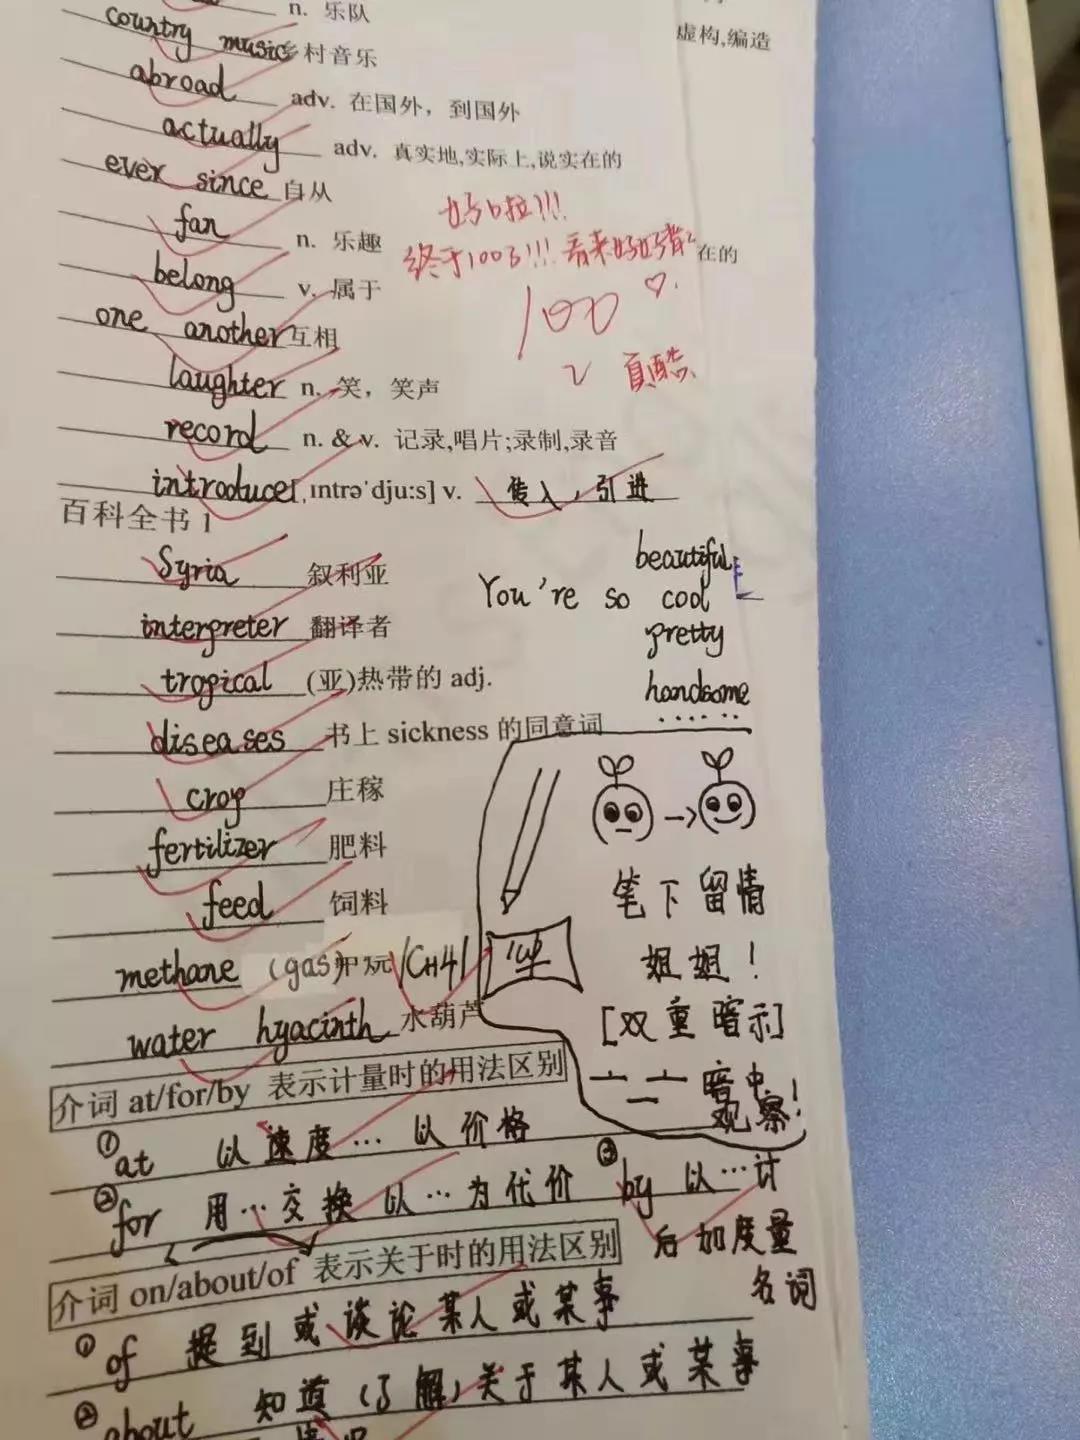 n. 乐队
虚构,编造
country music 乡村音乐
abroad adv. 在国外，到国外
actually adv. 真实地,实际上,说实在的
ever since 自从
好哒啦!!!
fan n. 乐趣
终于100了!!! 看来好好背 在的
belong v. 属于
100
one another 互相
laughter n. 笑，笑声
真酷
record n. & v. 记录,唱片;录制,录音
introduce [ˌɪntrəˈdjuːs] v. 传入，引进
百科全书 1
Syria 叙利亚
You're so beautiful
cool
pretty
handsome
......
interpreter 翻译者
tropical (亚)热带的 adj.
diseases 书上 sickness 的同意词
crop 庄稼
fertilizer 肥料
feed 饲料
methane (gas) CH4
water hyacinth 水葫芦
笔下留情
姐姐！
[双重暗示]
暗中
观察！
介词 at/for/by 表示计量时的用法区别
①at 以速度… 以价格
②for 用…交换 以…为代价 ③by 以…计
后加度量
名词
介词 on/about/of 表示关于时的用法区别
①of 提到或谈论某人或某事
②about 知道（了解）关于某人或某事